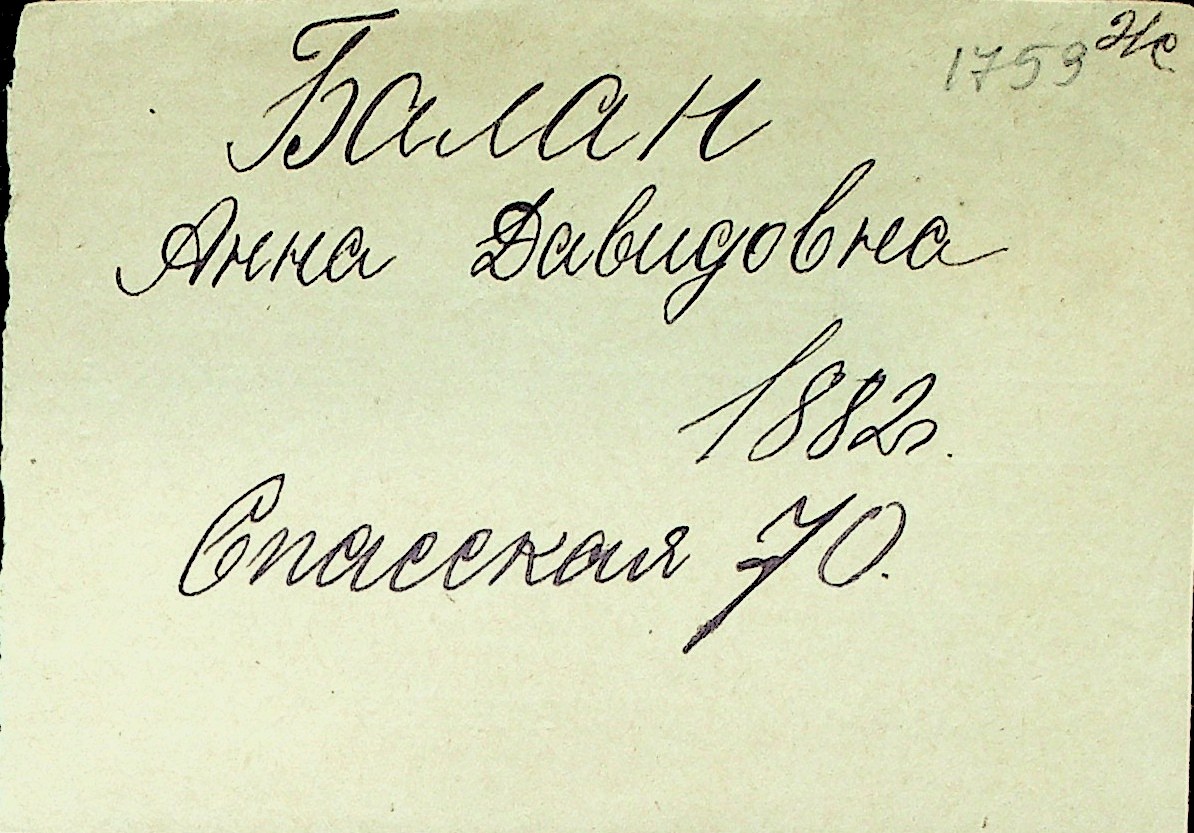 1759
Балан
Анна Давидовна
1882г.
Спасская 70.